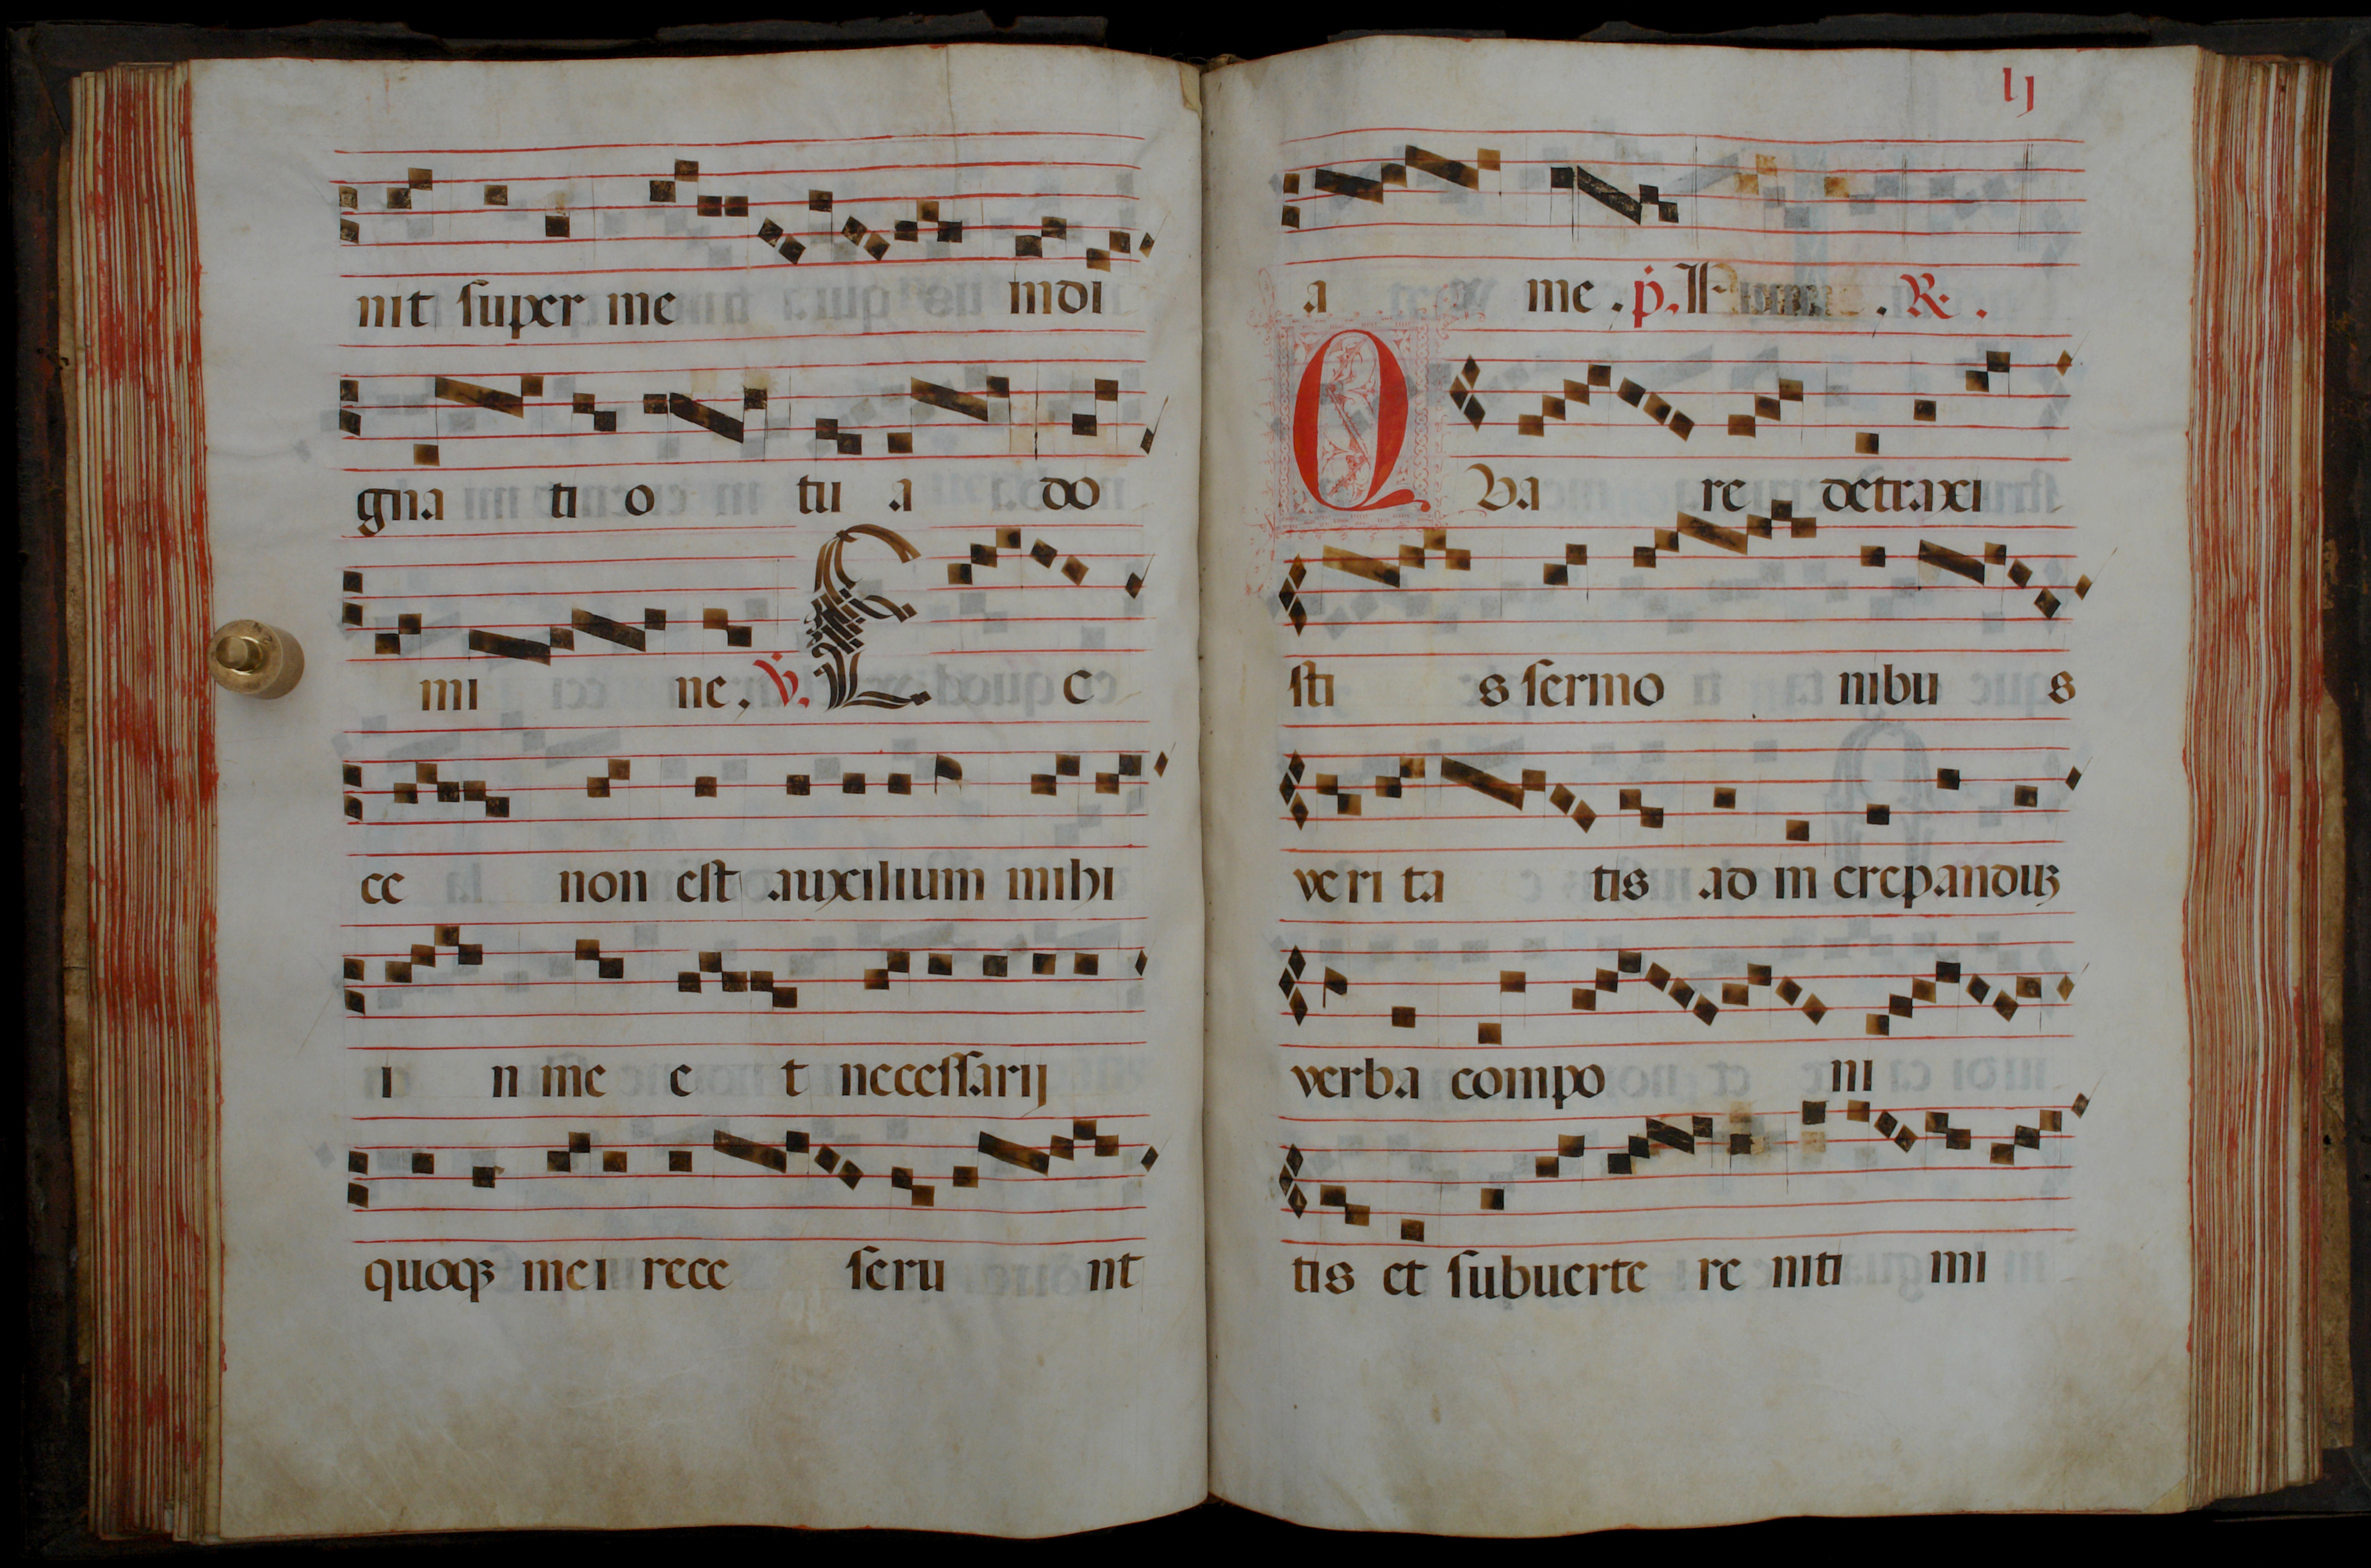 nit super me indi
gna ti o tu a do
mi ne. v. E c
ce non est auxilium mihi
i n me e t necessarij
quoqꝫ mei rece seru nt
lj
a me. p. . R.
Q Va re detraxi
sti s sermo nibu s
veri ta tis ad in crepanduꝫ
verba compo ni
tis et subuerte re niti mi